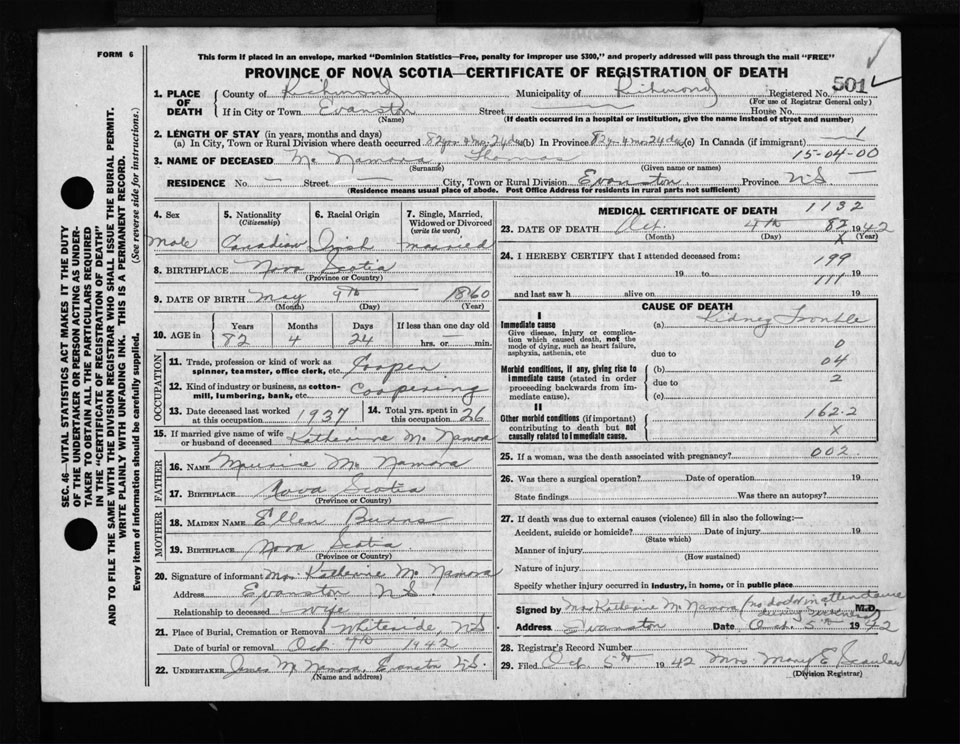 FORM 6
This form if placed in an envelope, marked "Dominion Statistics—Free, penalty for improper use $300," and properly addressed will pass through the mail "FREE"
PROVINCE OF NOVA SCOTIA—CERTIFICATE OF REGISTRATION OF DEATH
501
1. PLACE OF DEATH
County of Richmond Municipality of Richmond Registered No.
(For use of Registrar General only)
If in City or Town Evanston Street House No.
(Name) (If death occurred in a hospital or institution, give the name instead of street and number)
2. LENGTH OF STAY (in years, months and days)
(a) In City, Town or Rural Division where death occurred 82yrs 4mos 24ds (b) In Province 82yrs 4mos 24ds (c) In Canada (if immigrant) 1
3. NAME OF DECEASED Mc Namara, Thomas 15-04-00
(Surname) (Given name or names)
RESIDENCE No. — Street — City, Town or Rural Division Evanston. Province N.S.
(Residence means usual place of abode. Post Office Address for residents in rural parts not sufficient)
SEC. 46—VITAL STATISTICS ACT MAKES IT THE DUTY
OF THE UNDERTAKER OR PERSON ACTING AS UNDER-
TAKER TO OBTAIN ALL THE PARTICULARS REQUIRED
IN THE "CERTIFICATE OF REGISTRATION OF DEATH"
AND TO FILE THE SAME WITH THE DIVISION REGISTRAR WHO SHALL ISSUE THE BURIAL PERMIT.
WRITE PLAINLY WITH UNFADING INK. THIS IS A PERMANENT RECORD.
Every item of information should be carefully supplied. (See reverse side for instructions.)
4. Sex 5. Nationality (Citizenship) 6. Racial Origin 7. Single, Married, Widowed or Divorced (write the word)
Male Canadian Irish Married
8. BIRTHPLACE Nova Scotia
(Province or Country)
9. DATE OF BIRTH May 9th 1860
(Month) (Day) (Year)
10. AGE in Years Months Days If less than one day old
82 4 24 hrs. or min.
OCCUPATION
11. Trade, profession or kind of work as spinner, teamster, office clerk, etc. Cooper
12. Kind of industry or business, as cotton-mill, lumbering, bank, etc. Coopering
13. Date deceased last worked at this occupation 1937 14. Total yrs. spent in this occupation 26
15. If married give name of wife or husband of deceased Katherine Mc Namara
FATHER
16. NAME Maurice Mc Namara
17. BIRTHPLACE Nova Scotia
(Province or Country)
MOTHER
18. MAIDEN NAME Ellen Burns
19. BIRTHPLACE Nova Scotia
(Province or Country)
20. Signature of informant Mrs Katherine Mc Namara
Address Evanston N.S.
Relationship to deceased wife
21. Place of Burial, Cremation or Removal Whiteside, N.S.
Date of burial or removal Oct 7th 1942
22. UNDERTAKER James Mc Namara, Evanston N.S.
(Name and address)
MEDICAL CERTIFICATE OF DEATH 1132
23. DATE OF DEATH Oct. 4th 82 1942
(Month) (Day) X (Year)
24. I HEREBY CERTIFY that I attended deceased from: 199
19 to 19
111
and last saw h alive on 19
CAUSE OF DEATH
I
Immediate cause (a) Kidney Trouble
Give disease, injury or complication which caused death, not the mode of dying, such as heart failure, asphyxia, asthenia, etc
due to 0
Morbid conditions, if any, giving rise to immediate cause (stated in order proceeding backwards from immediate cause).
(b) 04
due to 2
(c)
II
Other morbid conditions (if important) contributing to death but not causally related to immediate cause.
162.2
X
25. If a woman, was the death associated with pregnancy? 002
26. Was there a surgical operation? Date of operation 19
State findings Was there an autopsy?
27. If death was due to external causes (violence) fill in also the following:—
Accident, suicide or homicide? Date of injury 19
(State which)
Manner of injury
(How sustained)
Nature of injury
Specify whether injury occurred in industry, in home, or in public place
Signed by Mrs Katherine Mc Namara (no doctor in attendance during sickness) M.D.
Address Evanston Date Oct. 5th 1942
28. Registrar's Record Number
29. Filed Oct. 5th 1942 Mrs. Mary E Scanlan
(Division Registrar)